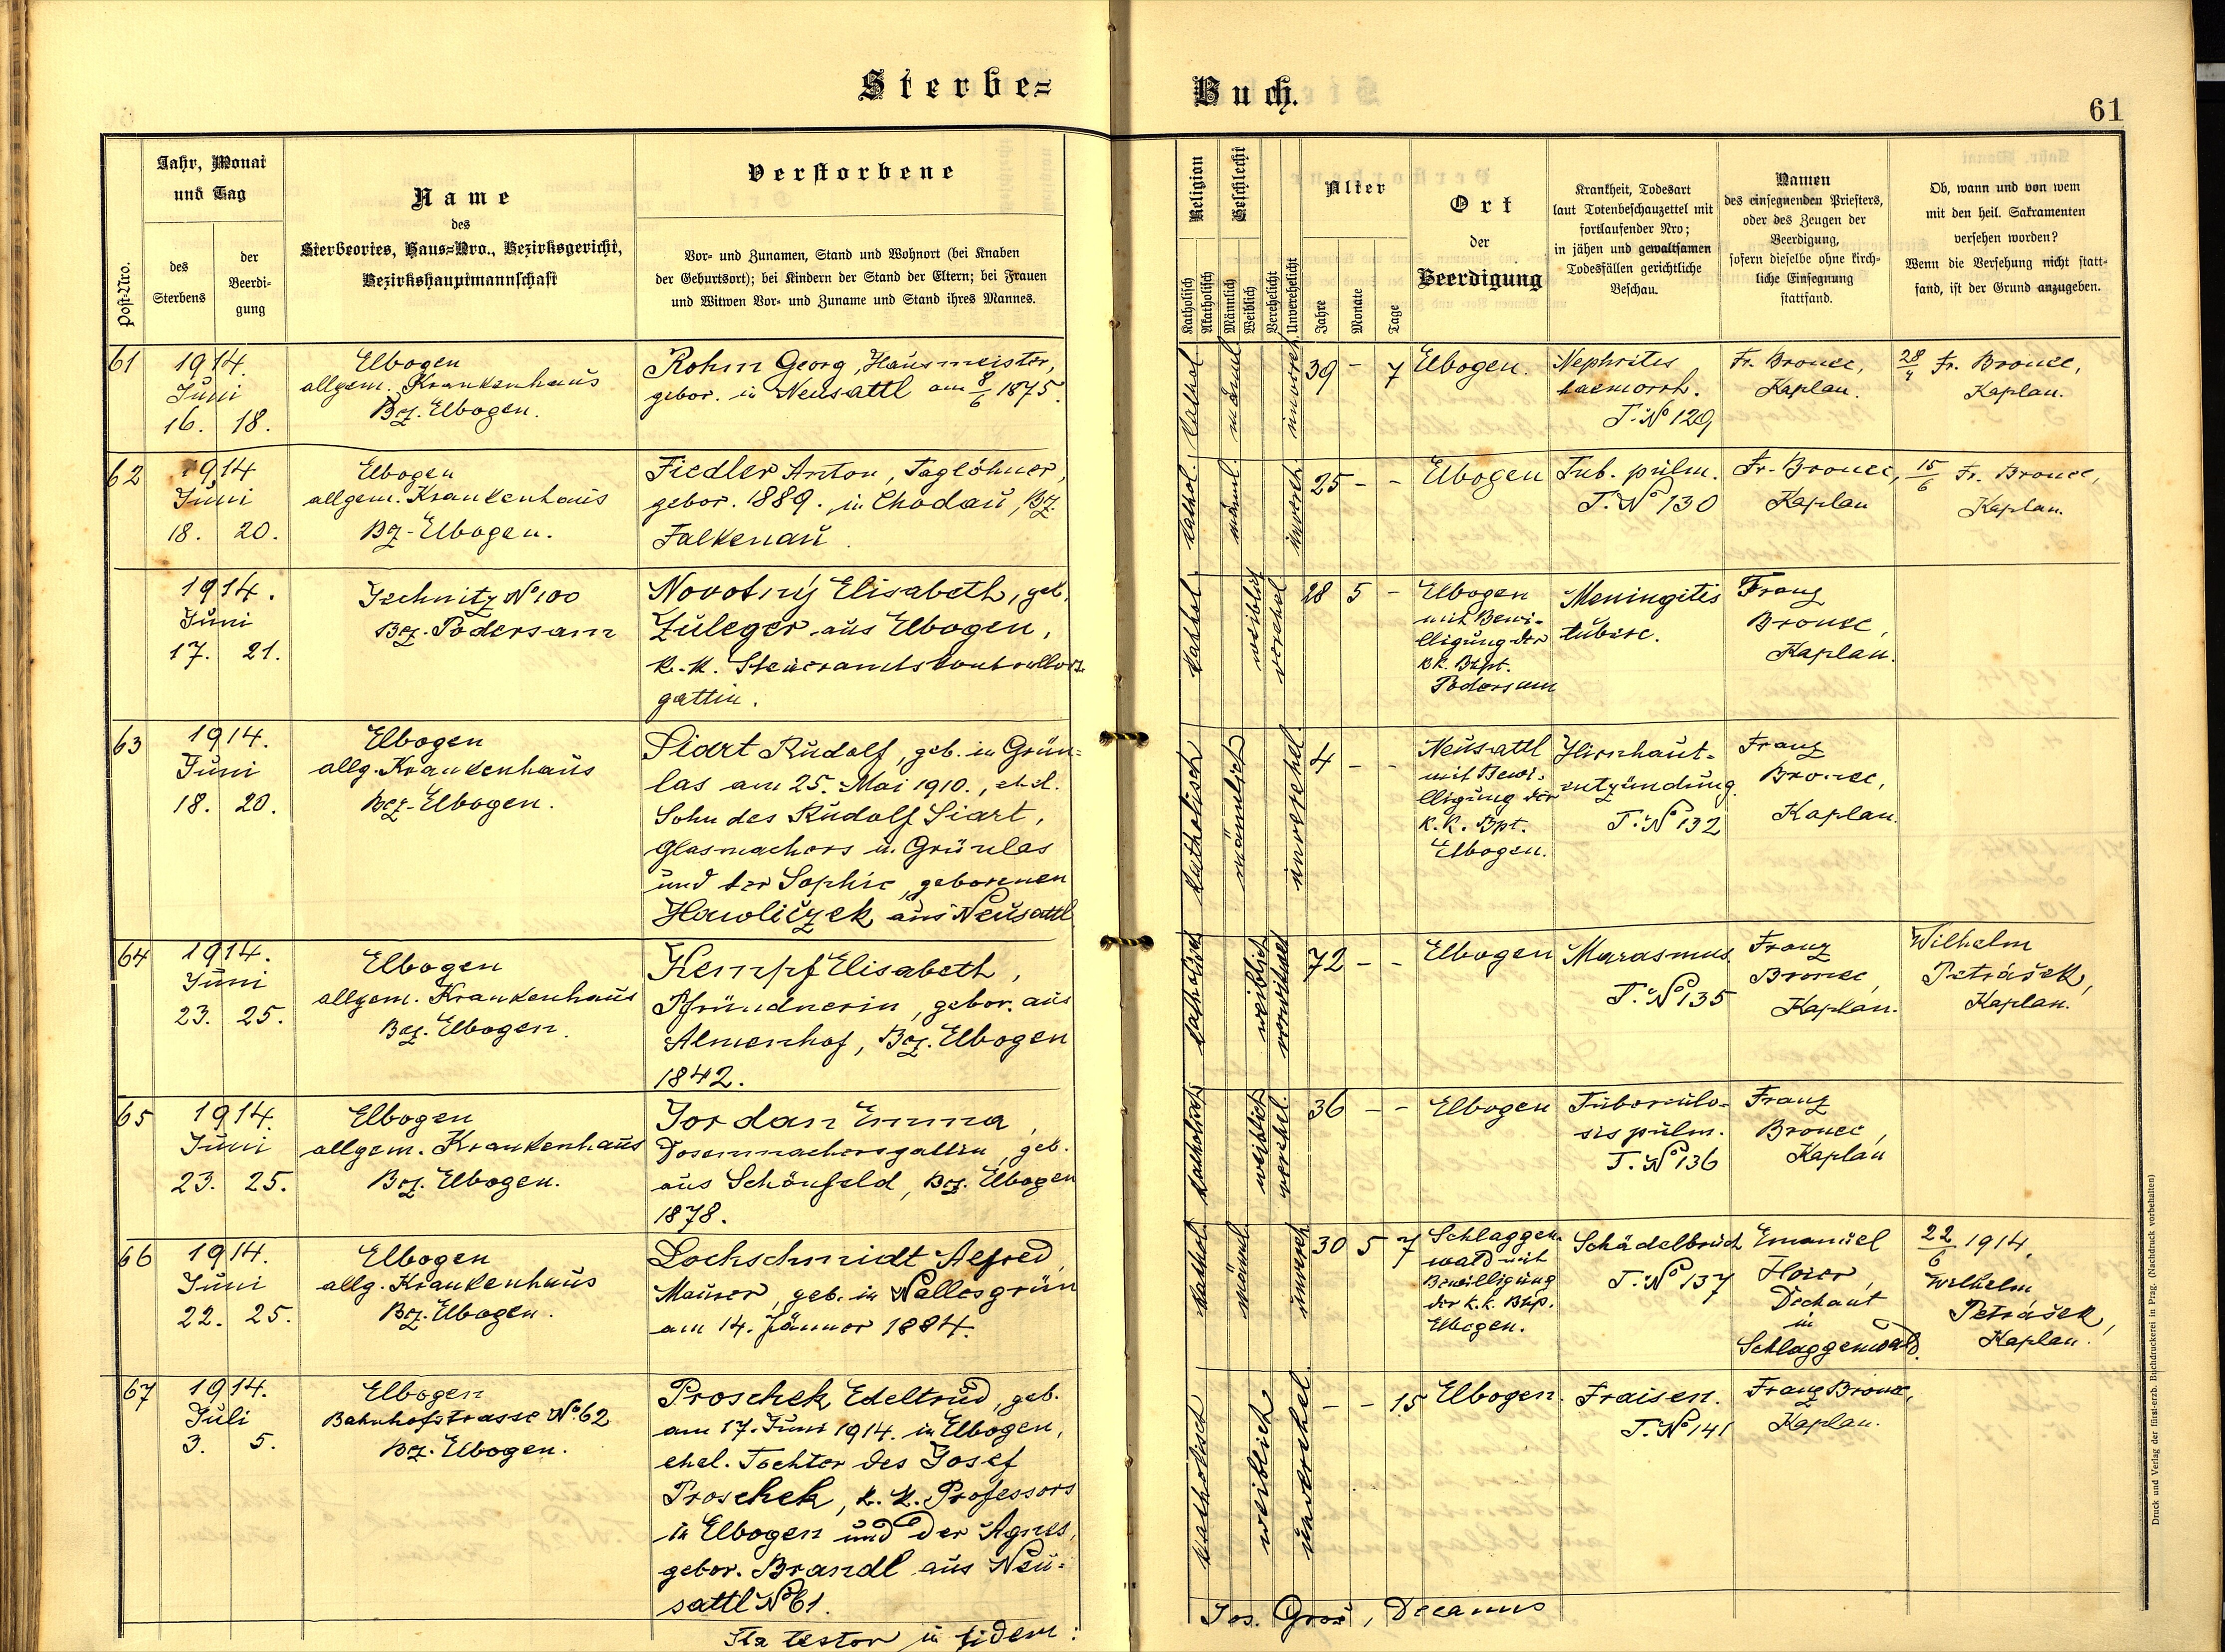 Sterbe=
Buch.
61
Post-Nro.
Jahr, Monat
und Tag
des
Sterbens
der
Beerdi-
gung
Name
des
Sterbeortes, Haus=Nro., Bezirksgericht,
Bezirkshauptmannschaft
Verstorbene
Vor- und Zunamen, Stand und Wohnort (bei Knaben
der Geburtsort); bei Kindern der Stand der Eltern; bei Frauen
und Witwen Vor- und Zuname und Stand ihres Mannes.
Religion
Katholisch
Akatholisch
Geschlecht
Männlich
Weiblich
Verehelicht
Unverehelicht
Alter
Jahre
Monate
Tage
Ort
der
Beerdigung
Krankheit, Todesart
laut Totenbeschauzettel mit
fortlaufender Nro;
in jähen und gewaltsamen
Todesfällen gerichtliche
Beschau.
Namen
des einsegnenden Priesters,
oder des Zeugen der
Beerdigung,
sofern dieselbe ohne kirch-
liche Einsegnung
stattfand.
Ob, wann und von wem
mit den heil. Sakramenten
versehen worden?
Wenn die Versehung nicht statt-
fand, ist der Grund anzugeben.
61
1914.
Juni
16. 18.
Elbogen
allgem. Krankenhaus
Bez. Elbogen.
Rohm Georg, Hausmeister,
gebor. in Neusattl am 8/6 1875.
kathol.
männl.
unvereh.
39 - 7
Elbogen.
Nephritis
haemorrh.
T. No 129
Fr. Bronec,
Kaplan.
28/4 Fr. Bronec,
Kaplan.
62
1914
Juni
18. 20.
Elbogen
allgem. Krankenhaus
Bz. Elbogen.
Fiedler Anton, Taglöhner,
gebor. 1889. in Chodau, Bz.
Falkenau.
kathol.
männl.
unvereh.
25 - -
Elbogen
Tub. pulm.
T. No 130
Fr. Bronec,
Kaplan
15/6 Fr. Bronec,
Kaplan.
1914.
Juni
17. 21.
Jechnitz No 100
Bez. Podersam
Novotný Elisabeth, geb.
Zuleger aus Elbogen,
k. k. Steueramtskontrollors
gattin.
kathol.
weiblich
verehel
28 5 -
Elbogen
mit Bewi-
lligung der
kk. Bhpt.
Podersam
Meningitis
tuberc.
Franz
Bronec,
Kaplan.
63
1914.
Juni
18. 20.
Elbogen
allg. Krankenhaus
Bez. Elbogen.
Siart Rudolf, geb. in Grün=
las am 25. Mai 1910., ehel.
Sohn des Rudolf Siart,
Glasmachers in Grünlas
und der Sophie, geborenen
Hawliczek aus Neusattl
katholisch
männlich
unverehel.
4 - -
Neusattl
mit Bewi-
lligung der
k. k. Bpt.
Elbogen.
Hirnhaut-
entzündung.
T. No 132
Franz
Bronec,
Kaplan.
64
1914.
Juni
23. 25.
Elbogen
allgem. Krankenhaus
Bez. Elbogen.
Kempf Elisabeth,
Pfründnerin, gebor. aus
Almenhof, Bez. Elbogen
1842.
katholisch
weiblich
verwitwet
72 - -
Elbogen
Marasmus.
T. No 135
Franz
Bronec,
Kaplan.
Wilhelm
Petrášek,
Kaplan.
65
1914.
Juni
23. 25.
Elbogen
allgem. Krankenhaus
Bez. Elbogen.
Jordan Emma,
Dosenmachersgattin, geb.
aus Schönfeld, Bez. Elbogen
1878.
katholisch
weiblich
verehel.
36 - -
Elbogen
Tuberculo-
sis pulm.
T. No 136
Franz
Bronec,
Kaplan
66
1914.
Juni
22. 25.
Elbogen
allg. Krankenhaus
Bez. Elbogen.
Lochschmidt Alfred,
Maurer, geb. in Nallesgrün
am 14. Jänner 1884.
kathol.
männl.
unvereh.
30 5 7
Schlaggen-
wald mit
Bewilligung
der k. k. Bhp.
Elbogen.
Schädelbruch
T. No 137
Emanuel
Hoier,
Dechant
in
Schlaggenwald.
22/6 1914.
Wilhelm
Petrášek,
Kaplan.
67
1914.
Juli
3. 5.
Elbogen
Bahnhofstrasse No. 62
Bez. Elbogen.
Proschek Edeltrud, geb.
am 17. Juni 1914. in Elbogen,
ehel. Tochter des Josef
Proschek, k. k. Professors
in Elbogen und der Agnes,
gebor. Brandl aus Neu=
sattl No 61.
katholisch
weiblich
unverehel.
- - 15
Elbogen.
Fraisen.
T. No 141
Franz Bronec,
Kaplan.
Ita testor in fidem:
Jos. Groš, Decanus
Druck und Verlag der fürst-erzb. Buchdruckerei in Prag. (Nachdruck vorbehalten)